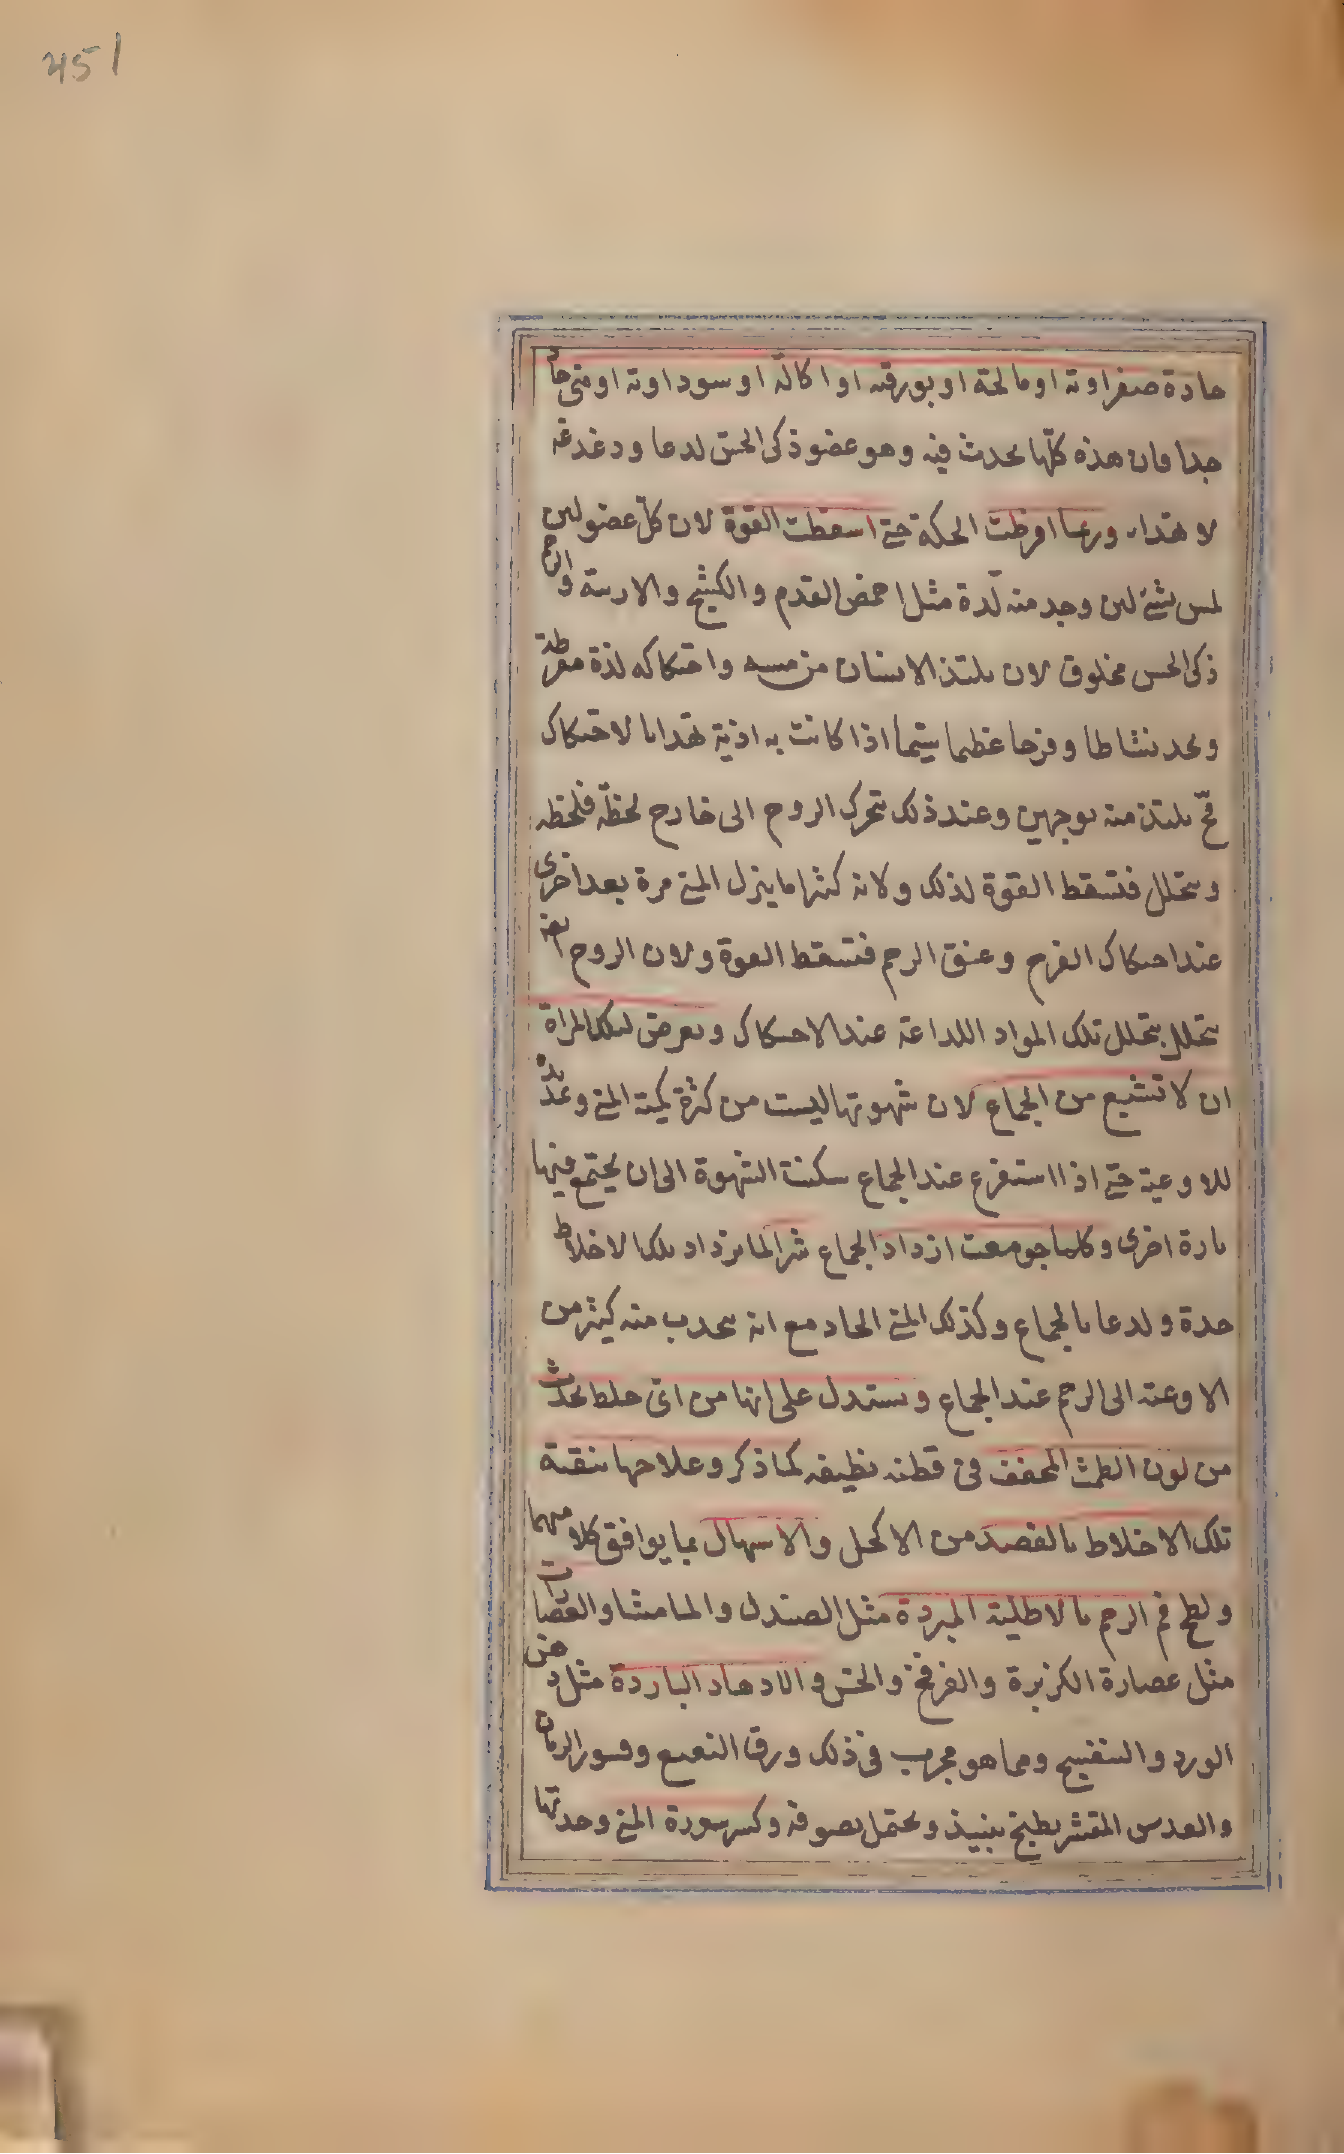 451
حادة صفراوية او مالحة او بورقية او اكالة او سوداوية او منى حاد
جدا فان هذه كلها يحدث فيه وهو عضو ذكى الحس لدعا ودغدغة
لا هدا، وربما افرطت الحكة حتى اسقطت القوة لان كل عضو لين
لمس شئ لين وجد منه لذة مثل اخمص القدم والكشح والاربية والرحم
ذكى الحس مخلوق لان يلتذ الانسان من مسه واحتكاكه لذة مفرطة
ويجد نشاطا وفرحا عظيما سيما اذا كانت به اذية تهدا بالاحتكاك
فح يلتذ منه بوجهين وعند ذلك يتحرك الروح الى خارج لحظة فلحظة
ويتحلل فتسقط القوة لذلك ولانه كثيرا ما ينزل المنى مرة بعد اخرى
عند احتكاك الفرج وعنق الرحم فتسقط القوة ولان الروح ايضا
يتحلل بتحلل تلك المواد اللداعة عند الاحتكاك ويعرض لتلك المراة
ان لا تشبع من الجماع لان شهوتها ليست من كثرة كمية المنى و
للاوعية حتى اذا استفرغ عند الجماع سكنت الشهوة الى ان يجتمع فيها
تارة اخرى وكلما جومعت ازداد الجماع شرا لما يزداد تلك الاخلاط
حدة ولدعا بالجماع وكذلك المنى الحاد مع انه يتحدب منه كثير من
الاوعية الى الرحم عند الجماع ويستدل على انها من اى خلط يحدث
من لون الطمث المجفف فى قطنة نظيفة كما ذكر وعلاجها تنقية
تلك الاخلاط بالفصد من الاكحل والاسهال بما يوافق كلا منهما
ولطخ فم الرحم بالاطلية المبردة مثل الصندل والماميثا والعصارات
مثل عصارة الكزبرة والفرفخ والخس والادهان الباردة مثل دهن
الورد والبنفسج ومما هو مجرب فى ذلك ورق النعنع وقشور الرمان
والعدس المقشر يطبخ بنبيذ ويحتمل بصوفة وكسر سورة المنى وحدتها